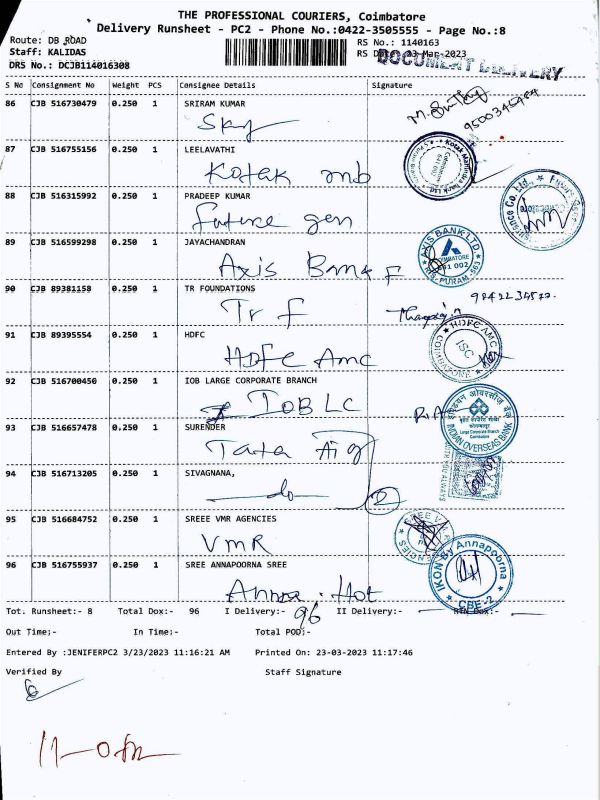 THE PROFESSIONAL COURIERS, Coimbatore
Delivery Runsheet - PC2 - Phone No.:0422-3505555 - Page No.:8
Route: DB ROAD RS No.: 1140163
Staff: KALIDAS RS Date: 23-Mar-2023
DRS No.: DCJB114016308 DOCUMENT DELIVERY
S No Consignment No Weight PCS Consignee Details Signature
86 CJB 516730479 0.250 1 SRIRAM KUMAR
87 CJB 516755156 0.250 1 LEELAVATHI
Kotak mb
88 CJB 516315992 0.250 1 PRADEEP KUMAR
Future gen
89 CJB 516599298 0.250 1 JAYACHANDRAN
AXIS BANK LTD. COIMBATORE
Axis Bank F
90 CJB 89381158 0.250 1 TR FOUNDATIONS
Tr F
91 CJB 89395554 0.250 1 HDFC
HDFC AMC COIMBATORE ISC
HDFC Amc
92 CJB 516700450 0.250 1 IOB LARGE CORPORATE BRANCH
IOB LC
INDIAN OVERSEAS BANK
Large Corporate Branch
Coimbatore
93 CJB 516657478 0.250 1 SURENDER
Tata Aig
94 CJB 516713205 0.250 1 SIVAGNANA,
do 2
95 CJB 516684752 0.250 1 SREEE VMR AGENCIES
VMR
96 CJB 516755937 0.250 1 SREE ANNAPOORNA SREE
IKON By Annapoorna CBE-2
Anna. Hot
Tot. Runsheet:- 8 Total Dox:- 96 I Delivery:- 96 II Delivery:- RTN Dox:-
Out Time:- In Time:- Total POD:-
Entered By :JENIFERPC2 3/23/2023 11:16:21 AM Printed On: 23-03-2023 11:17:46
Verified By Staff Signature